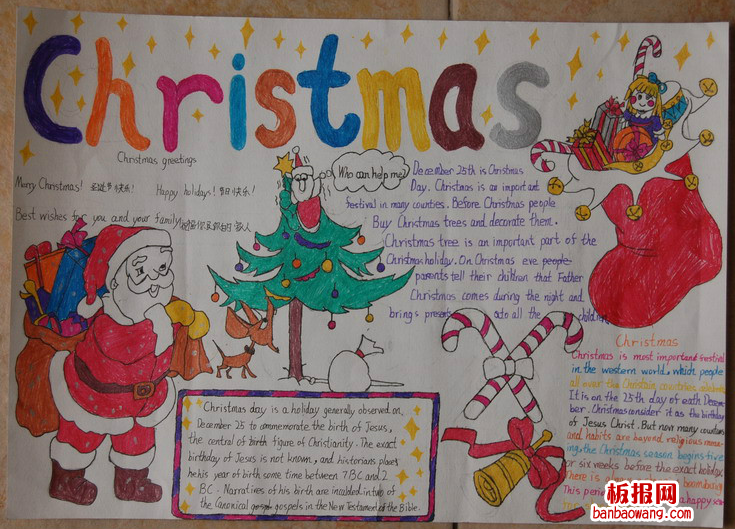 Christmas
Christmas greetings
Merry Christmas! 圣诞节快乐! Happy holidays! 节日快乐!
Best wishes for you and your family
Who can help me?
December 25th is Christmas
Day. Christmas is an important
festival in many countries. Before Christmas people
Buy Christmas trees and decorate them.
Christmas tree is an important part of the
Christmas holiday. On Christmas eve people
parents tell their children that Father
Christmas comes during the night and
brings presents to all the children
Christmas day is a holiday generally observed on
December 25 to commemorate the birth of Jesus,
the central of birth figure of Christianity. The exact
birthday of Jesus is not known, and historians places
his year of birth some time between 7 BC and 2
BC. Narratives of his birth are included in two of
the Canonical gospels in the New Testament of the Bible.
Christmas
Christmas is most important festival
in the western world. which people
all over the Christain countries
It is on the 25th day of each Decem-
ber. Christmas consider it as the birthday
of Jesus Christ. But now many countries
and habits are beyond religious mea-
ing, the Christmas season begins five
or six weeks before the exact holiday
There is
This period
板报网
banbaowang.com